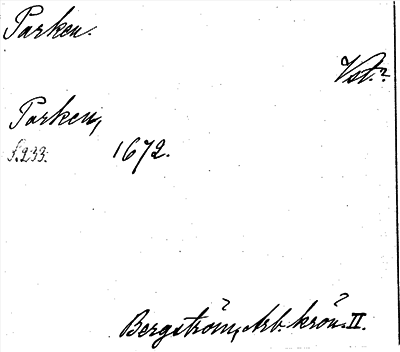 Parken.
Vst.?
Parken,
s. 233. 1672.
Bergström, Arb. krön. II.